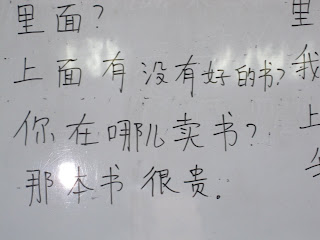 里面？
上面有没有好的书？
你在哪儿卖书？
那本书很贵。
里
我
上